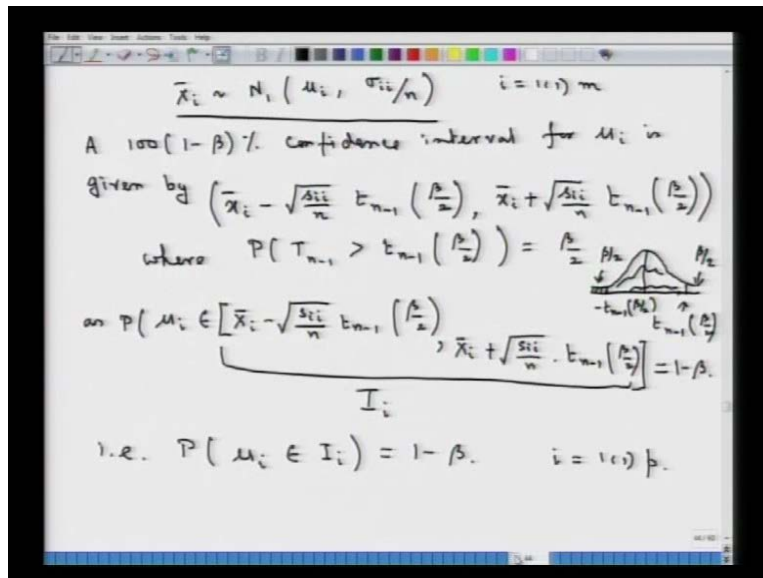 File Edit View Insert Actions Tools Help
x̄ᵢ ~ N₁ ( μᵢ, σᵢᵢ/n ) i = 1(1) m
A 100(1-β) % confidence interval for μᵢ is
given by ( x̄ᵢ - √(sᵢᵢ/n) tₙ₋₁ (β/2), x̄ᵢ + √(sᵢᵢ/n) tₙ₋₁ (β/2) )
where P( Tₙ₋₁ > tₙ₋₁ (β/2) ) = β/2
β/2 β/2
-tₙ₋₁(β/2) tₙ₋₁(β/2)
as P( μᵢ ∈ [ x̄ᵢ - √(sᵢᵢ/n) tₙ₋₁ (β/2)
, x̄ᵢ + √(sᵢᵢ/n) . tₙ₋₁ (β/2) ] = 1-β.
Iᵢ
i.e. P( μᵢ ∈ Iᵢ ) = 1-β. i = 1(1) p.